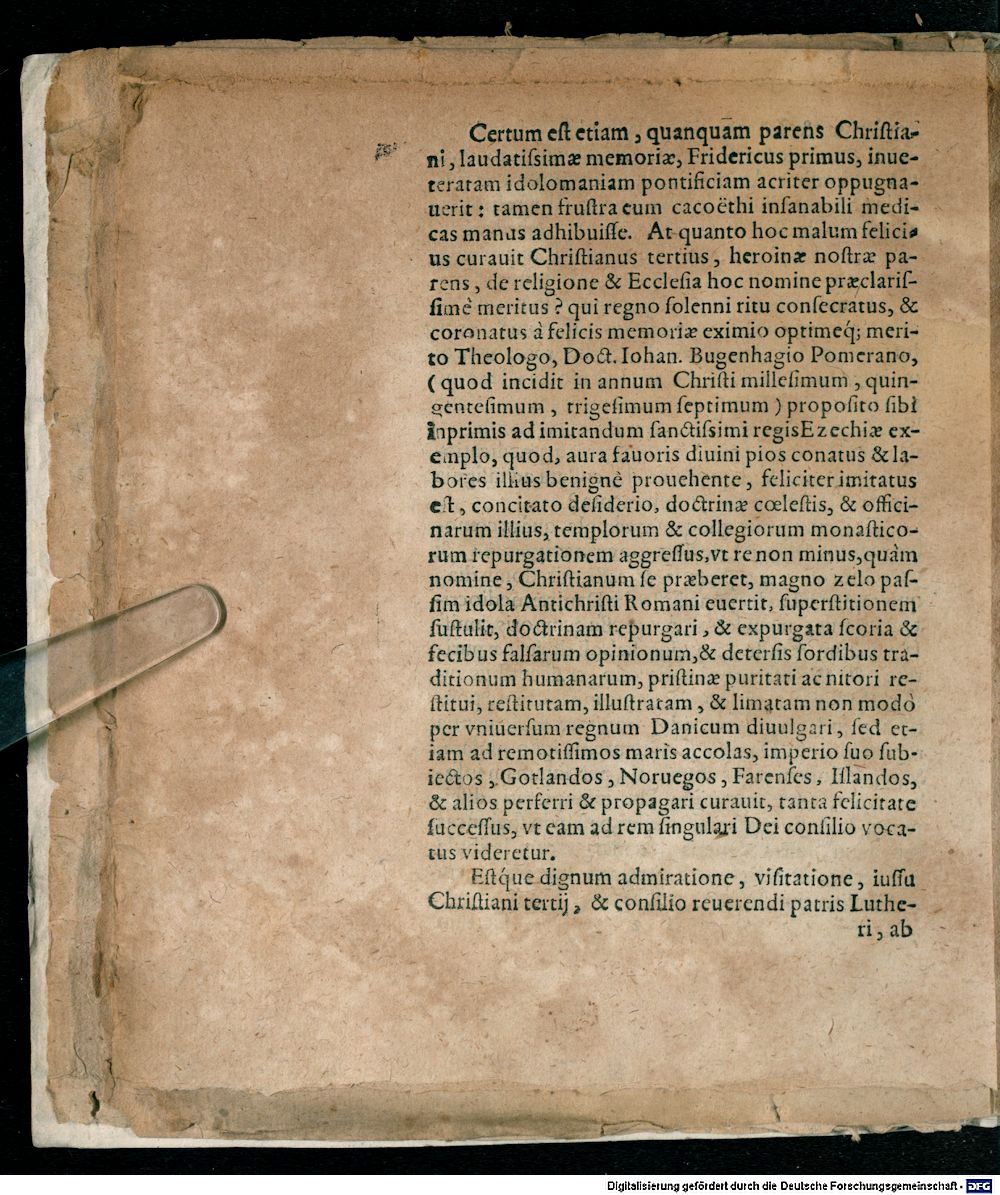 Certum eſt etiam, quanquam parens Chriſtia-
ni, laudatiſsimæ memoriæ, Fridericus primus, inue-
teratam idolomaniam pontificiam acriter oppugna-
uerit: tamen fruſtra eum cacoëthi inſanabili medi-
cas manus adhibuiſſe. At quanto hoc malum felici-
us curauit Chriſtianus tertius, heroinæ noſtræ pa-
rens, de religione & Eccleſia hoc nomine præclariſ-
ſimè meritus? qui regno ſolenni ritu conſecratus, &
coronatus à felicis memoriæ eximio optimeq́; meri-
to Theologo, Doct. Iohan. Bugenhagio Pomerano,
(quod incidit in annum Chriſti milleſimum, quin-
genteſimum, trigeſimum ſeptimum) propoſito ſibi
inprimis ad imitandum ſanctiſsimi regis Ezechiæ ex-
emplo, quod, aura fauoris diuini pios conatus & la-
bores illius benignè prouehente, feliciter imitatus
eſt, concitato deſiderio, doctrinæ cœleſtis, & offici-
narum illius, templorum & collegiorum monaſtico-
rum repurgationem aggreſſus, vt re non minus, quàm
nomine, Chriſtianum ſe præberet, magno zelo paſ-
ſim idola Antichriſti Romani euertit, ſuperſtitionem
ſuſtulit, doctrinam repurgari, & expurgata ſcoria &
fecibus falſarum opinionum, & deterſis ſordibus tra-
ditionum humanarum, priſtinæ puritati ac nitori re-
ſtitui, reſtitutam, illuſtratam, & limatam non modò
per vniuerſum regnum Danicum diuulgari, ſed et-
iam ad remotiſſimos maris accolas, imperio ſuo ſub-
iectos, Gotlandos, Noruegos, Farenſes, Iſlandos,
& alios perferri & propagari curauit, tanta felicitate
ſucceſſus, vt eam ad rem ſingulari Dei conſilio voca-
tus videretur.
Eſtq́ue dignum admiratione, viſitatione, iuſſu
Chriſtiani tertij, & conſilio reuerendi patris Luthe-
ri, ab
Digitalisierung gefördert durch die Deutsche Forschungsgemeinschaft - DFG